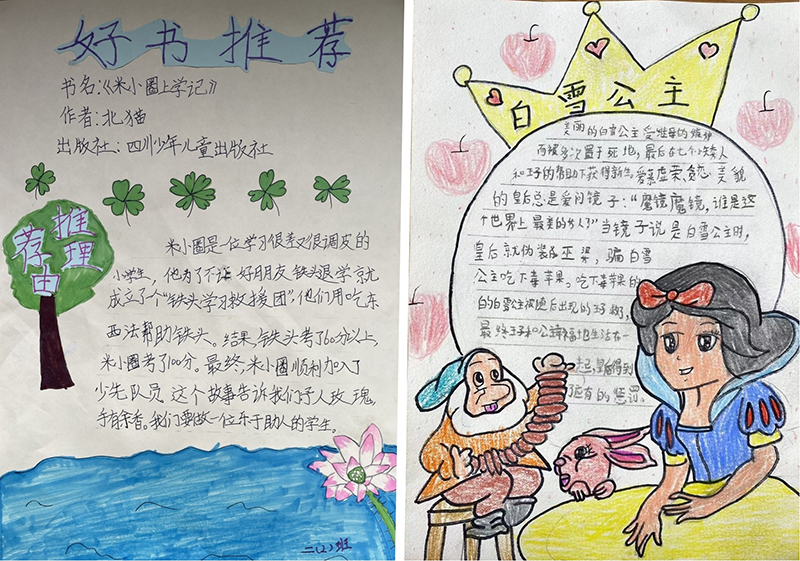 好书推荐
书名:《米小圈上学记》
作者:北猫
出版社:四川少年儿童出版社
推理
荐由
米小圈是一位学习很差又很调皮的
小学生,他为了不让好朋友铁头退学就
成立了个“铁头学习救援团”他们用吃东
西法帮助铁头。结果,铁头考了60分以上,
米小圈考了100分。最终,米小圈顺利加入了
少先队员 这个故事告诉我们予人玫瑰,
手有余香。我们要做一位乐于助人的学生。
二(2)班
白雪公主
美丽的白雪公主受继母的嫉妒
而被多次置于死地,最后在七个小矮人
和王子的帮助下获得新生。爱慕虚荣、贪恋美貌
的皇后总是爱问镜子:“魔镜魔镜,谁是这
个世界上最美的女人?”当镜子说是白雪公主时,
皇后就伪装成巫婆,骗白雪
公主吃下毒苹果。吃下毒苹果的
的白雪公主被随后出现的王子救,
最终王子和公主幸福地生活在一
起,皇后得到
应有的惩罚。